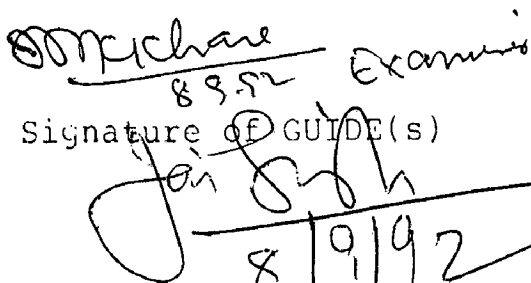 8.9.92 Examiner
Signature of GUIDE(s)
Jai Singh
8/9/92